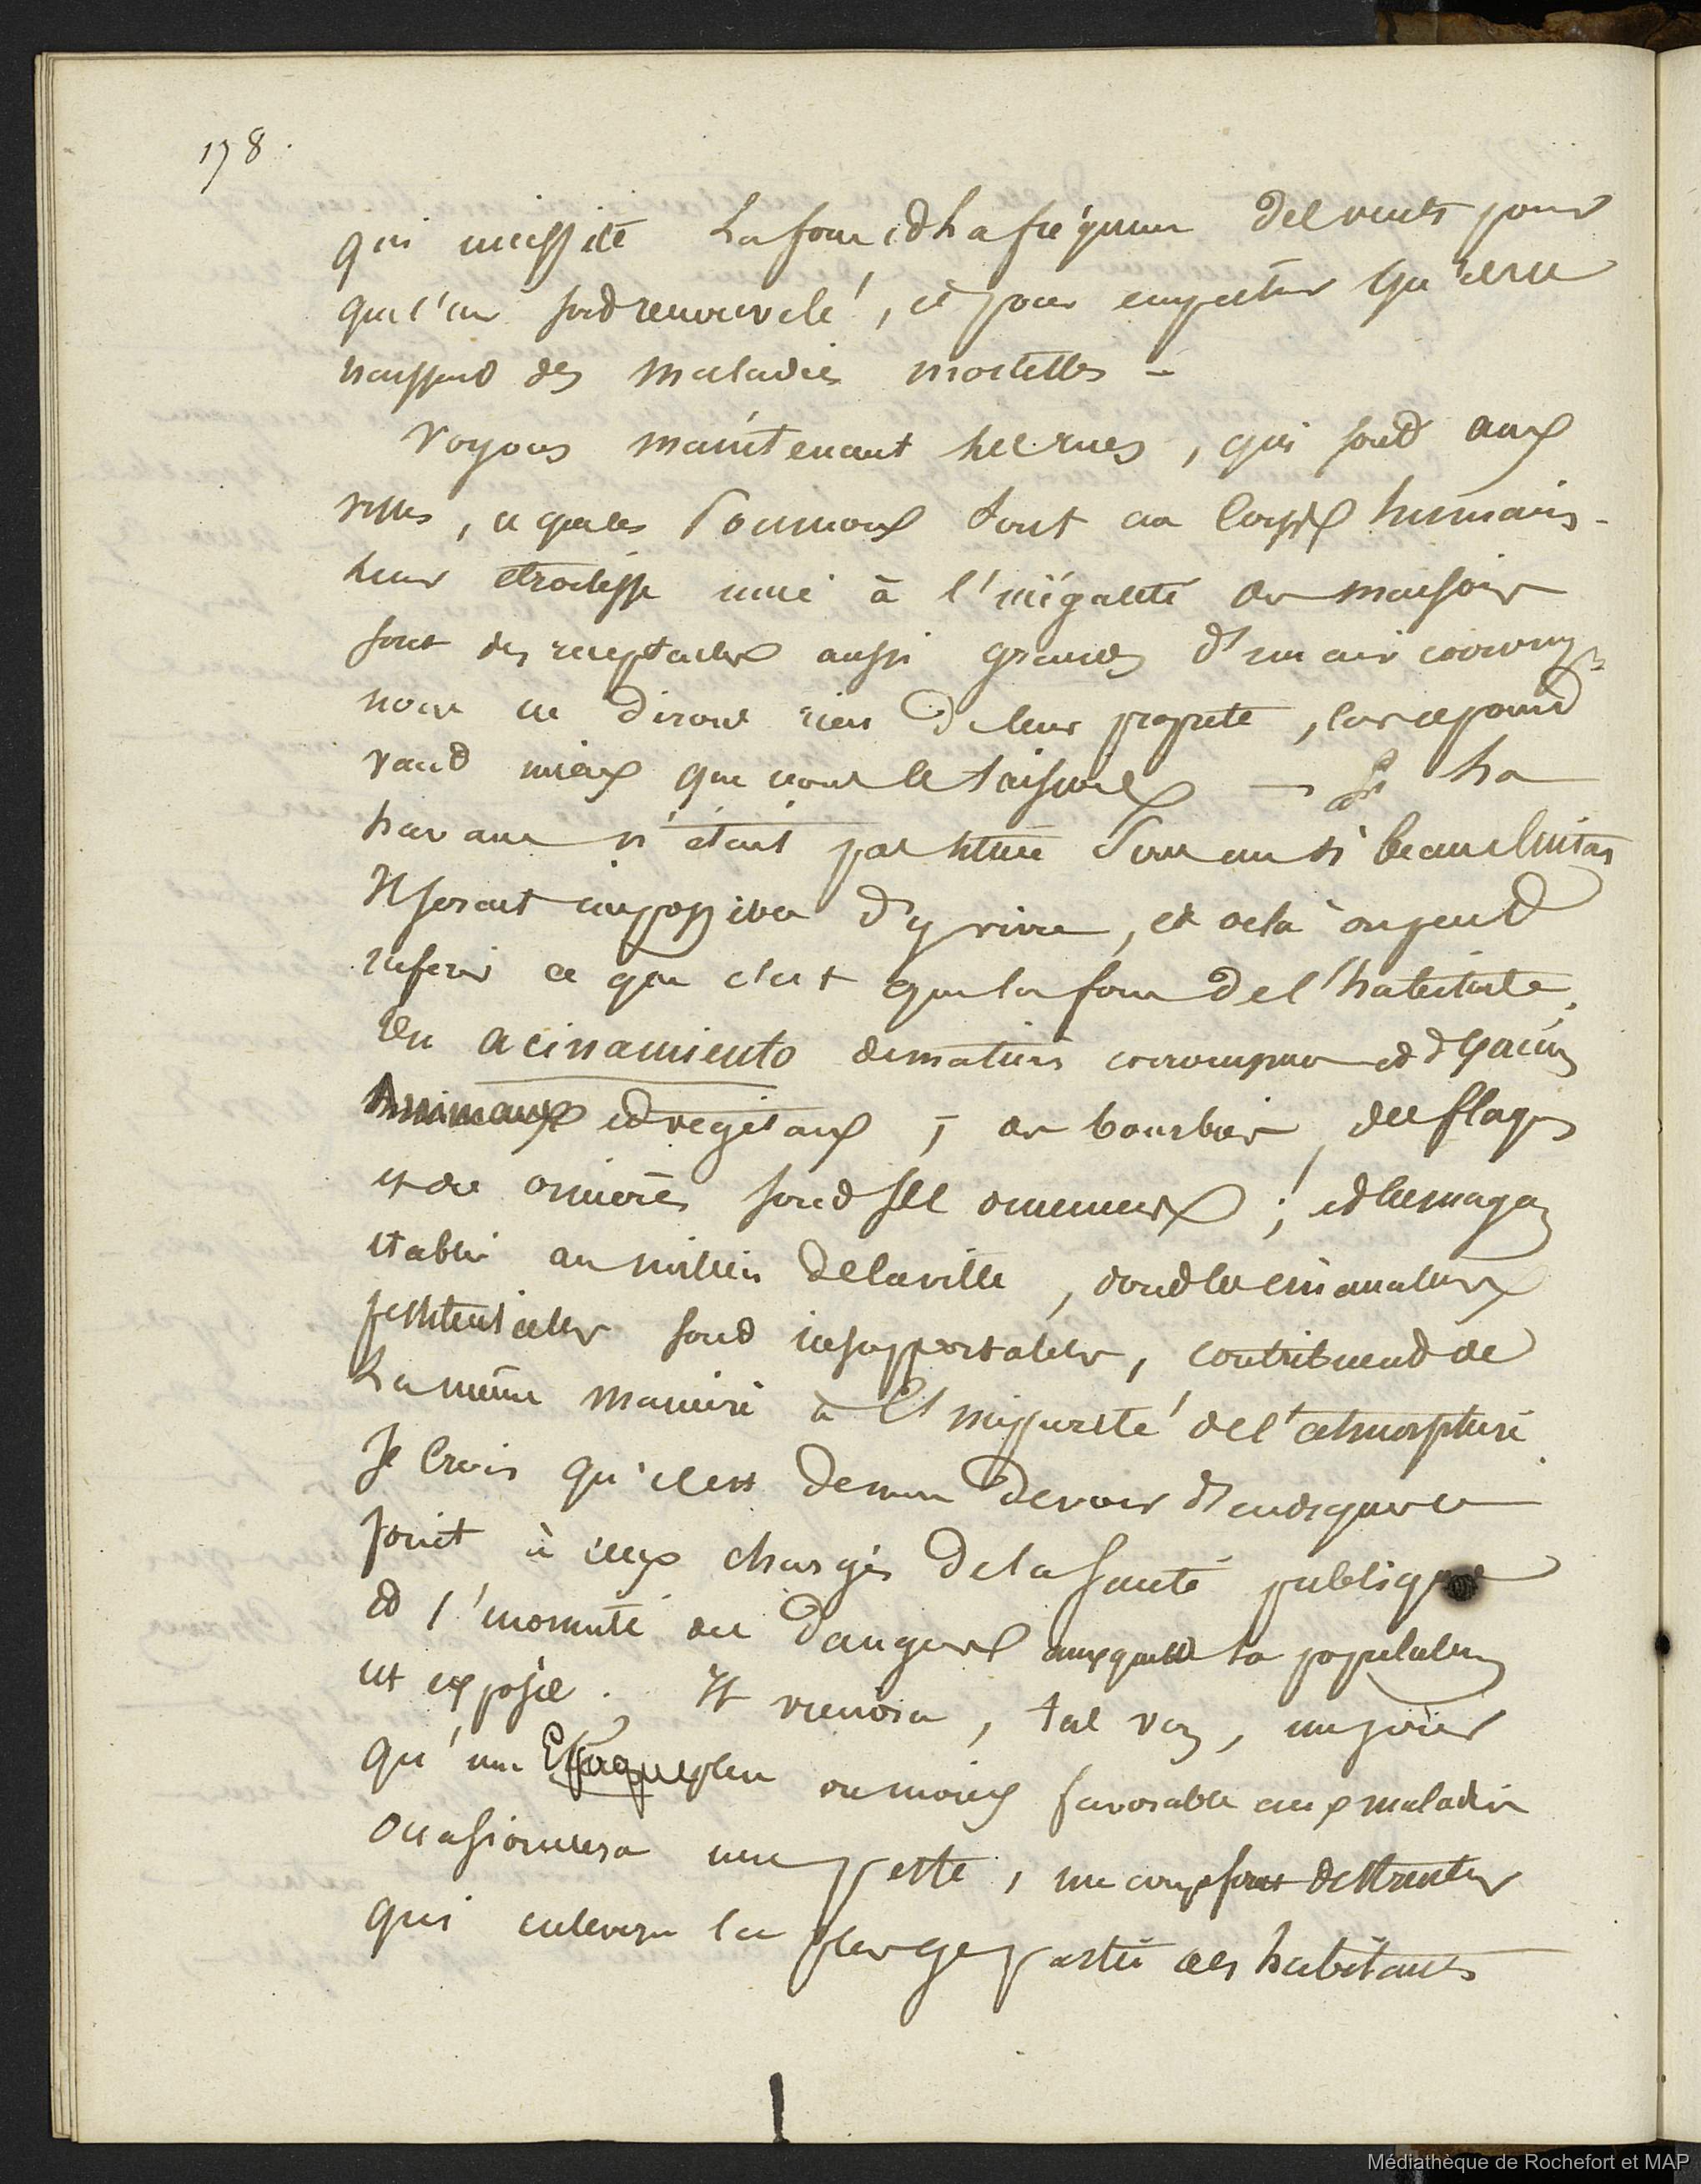 178.
qui necessite La force et La fréquence des vents pour
que l'air soit renouvelé, et pour empecher qu'il ne
naissent des maladies mortelles -
Voyons maintenant les rues, qui sont aux
villes, ce que les Poumons sont au Corps humain -
Leur etroitesse unie à l'inégalité des maisons
sont des receptacles aussi grands d'un air corrompu
nous ne dirons rien de leur propreté, car ce point
vaut mieux que nous le taisions — Si La
havane n'était pas située sous un si beau climat
Il serait impossible d'y vivre, et de là on peut
inferer ce que c'est que la force de l'habitude.
Un acinamiento de matières corrompues et d'
Animaux et vegetaux ; des bourbiers, des flaques
et des ornières sont ses ornemens ; et les magasins
etablis au milieu de la ville, dont les emanations
pestilentielles sont insupportables, contribuent de
La même manière à l'impureté de l'atmosphère.
Je Crois qu'il est de mon devoir d'indiquer ce
point à ceux chargés de la Santé publique
et l'enormité des dangers auxquels la population
est exposée. Il viendra, tal vez, un jour
qu'une plus ou moins favorable aux maladies
occasionnera une peste, un coup fort destructeur
qui enlevera la plus large partie des habitants
Médiathèque de Rochefort et MAP